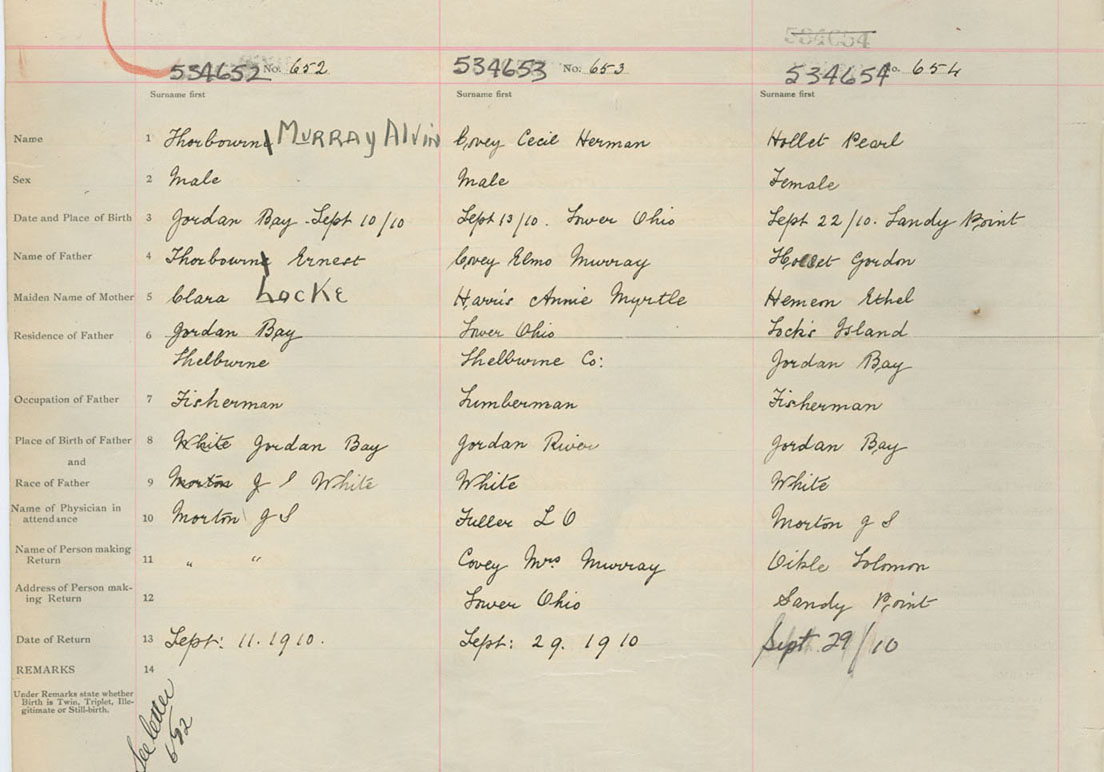 534654
534652 No. 652 534653 No. 653 534654 No. 654
Surname first Surname first Surname first
Name 1 Thorbourne MURRAY Alvin Covey Cecil Herman Hollet Pearl
Sex 2 Male Male Female
Date and Place of Birth 3 Jordan Bay - Sept 10/10 Sept 13/10. Lower Ohio Sept 22/10. Sandy Point
Name of Father 4 Thorbourne Ernest Covey Elmo Murray Hollet Gordon
Maiden Name of Mother 5 Clara Locke Harris Annie Myrtle Hemeon Ethel
Residence of Father 6 Jordan Bay Lower Ohio Lock's Island
Shelburne Shelburne Co: Jordan Bay
Occupation of Father 7 Fisherman Lumberman Fisherman
Place of Birth of Father 8 White Jordan Bay Jordan River Jordan Bay
and
Race of Father 9 Morton J S White White White
Name of Physician in
attendance 10 Morton J S Fuller L O Morton J S
Name of Person making
Return 11 " " Covey Mrs Murray Solomon
Address of Person mak-
ing Return 12 Lower Ohio Sandy Point
Date of Return 13 Sept: 11. 1910. Sept: 29. 1910 Sept 29/10
REMARKS 14
Under Remarks state whether
Birth is Twin, Triplet, Ille-
gitimate or Still-birth.
See letter
692